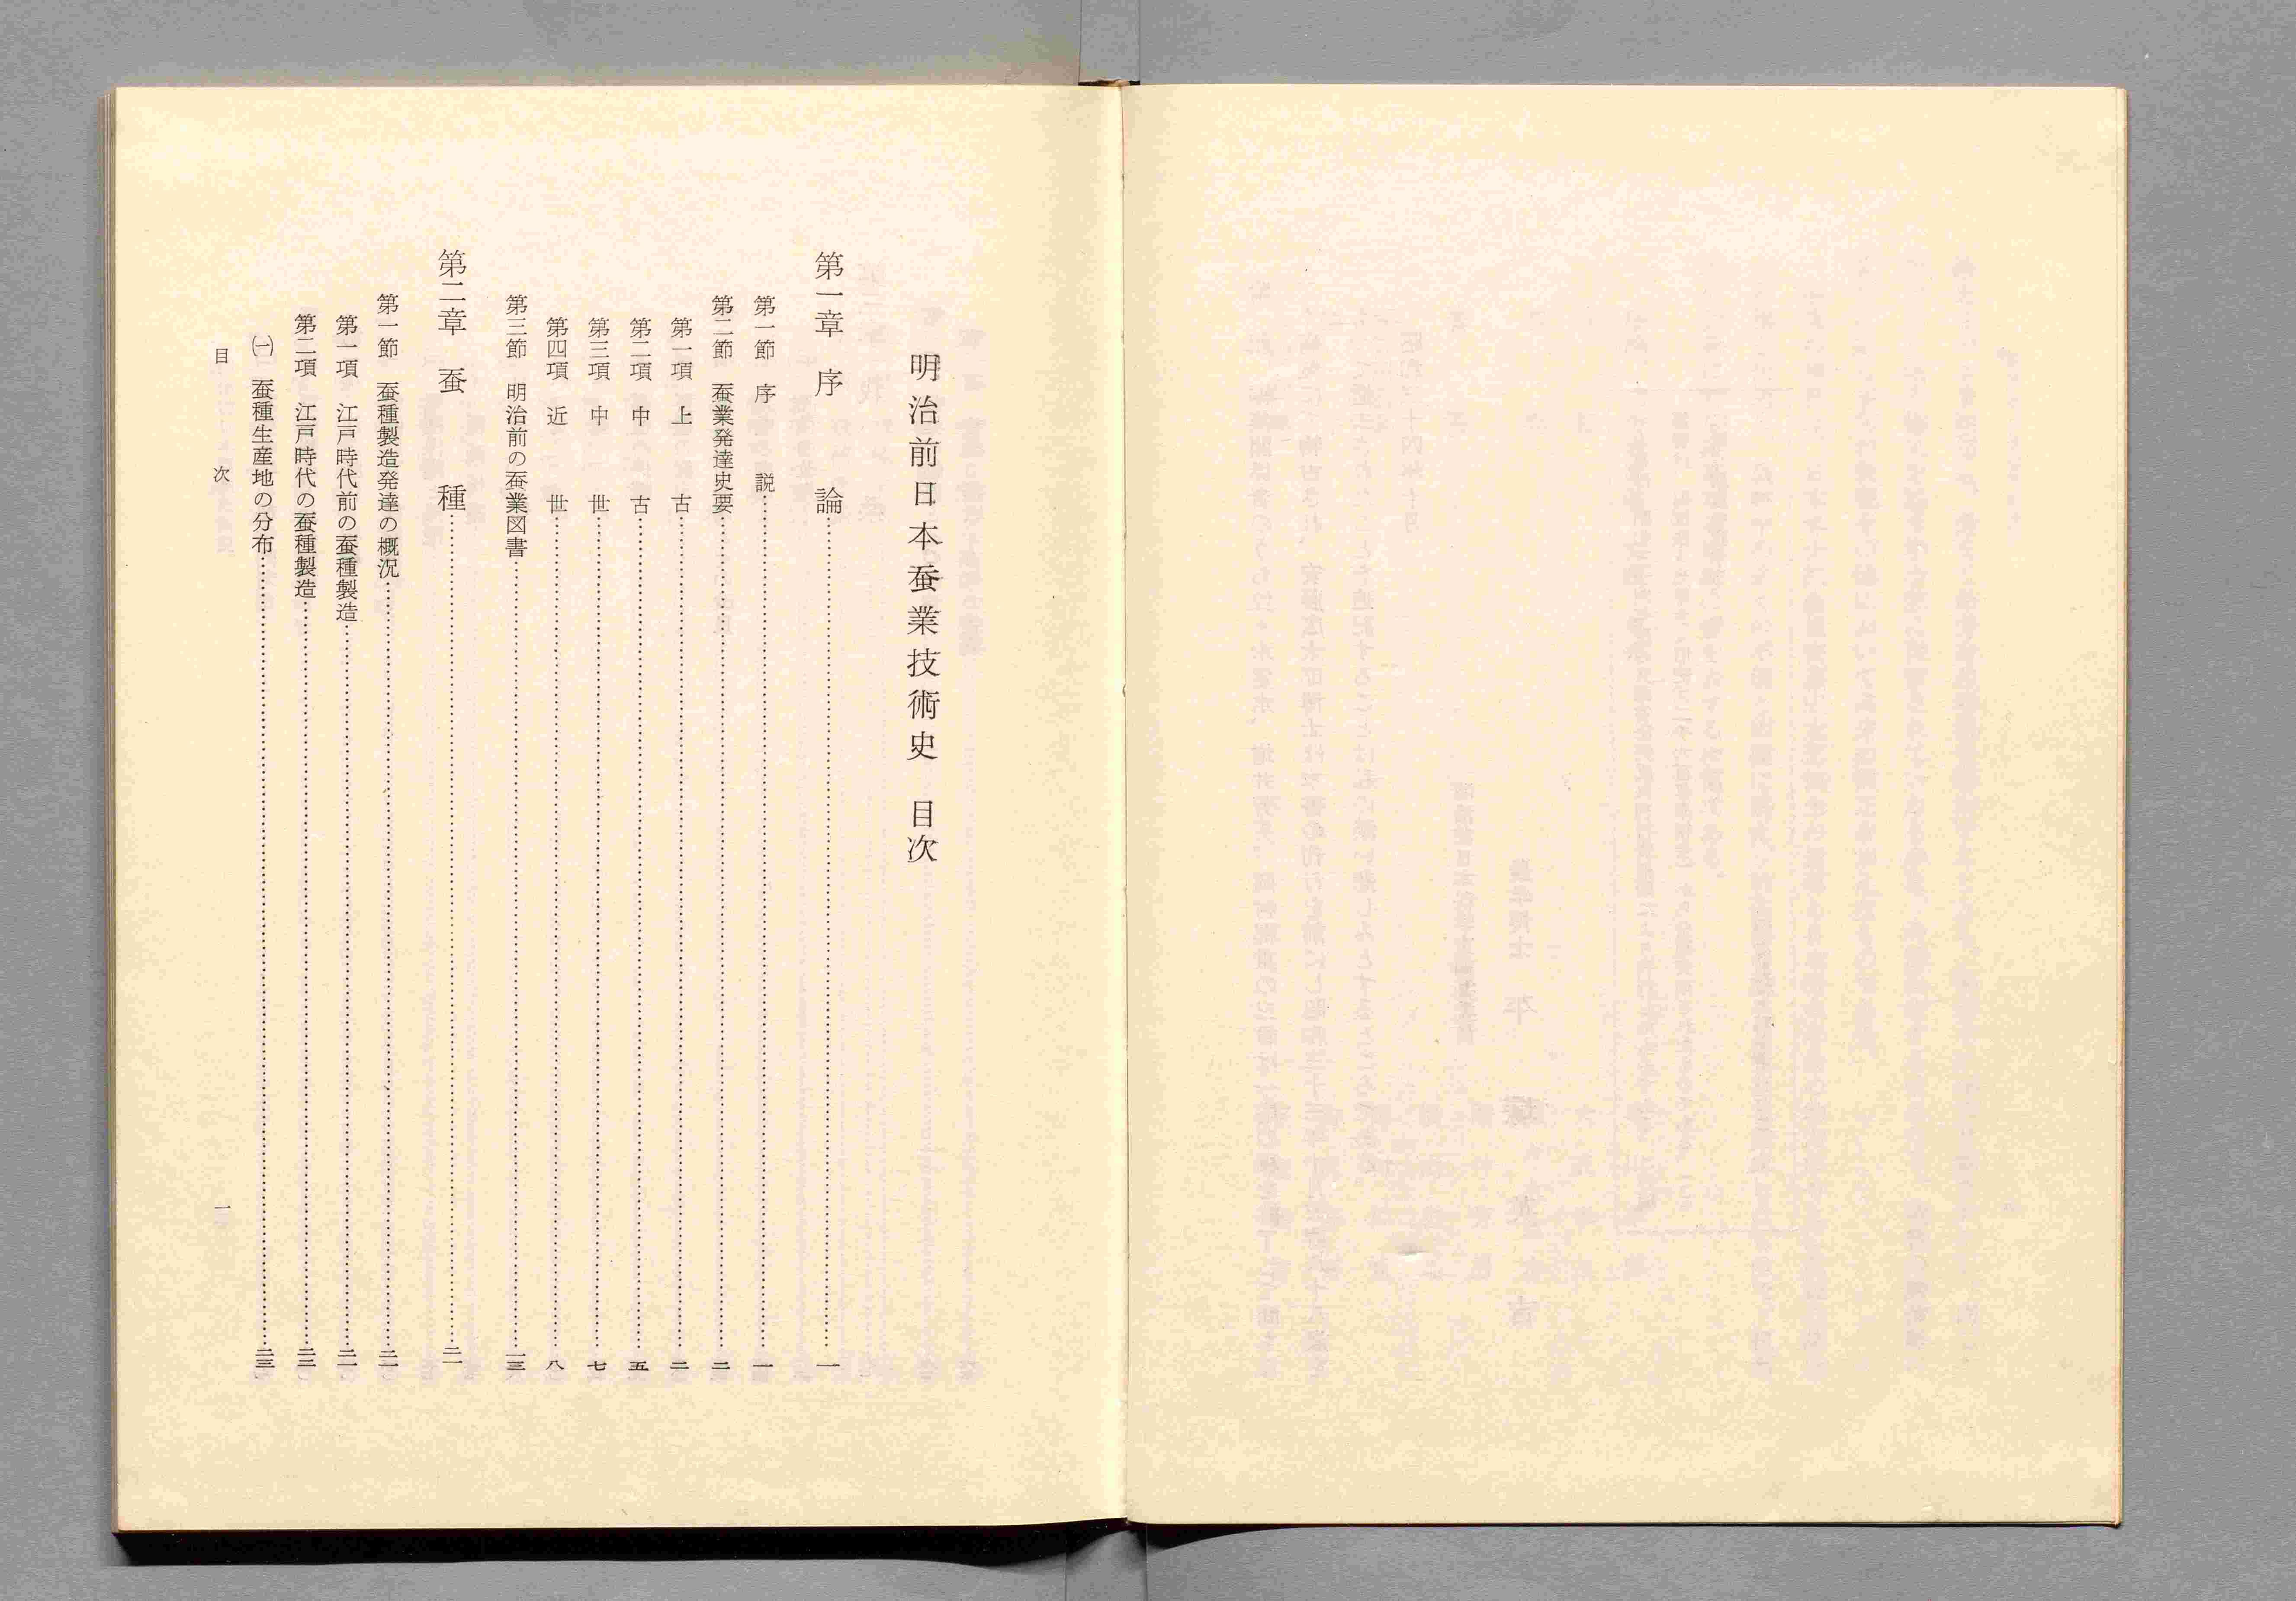 明治前日本蚕業技術史 目次
第一章 序論……一
第一節 序説……一
第二節 蚕業発達史要……二
第一項 上古……二
第二項 中古……五
第三項 中世……七
第四項 近世……八
第三節 明治前の蚕業図書……一三
第二章 蚕種……二一
第一節 蚕種製造発達の概況……二一
第一項 江戸時代前の蚕種製造……二一
第二項 江戸時代の蚕種製造……二三
㈠ 蚕種生産地の分布……二三
目次 一